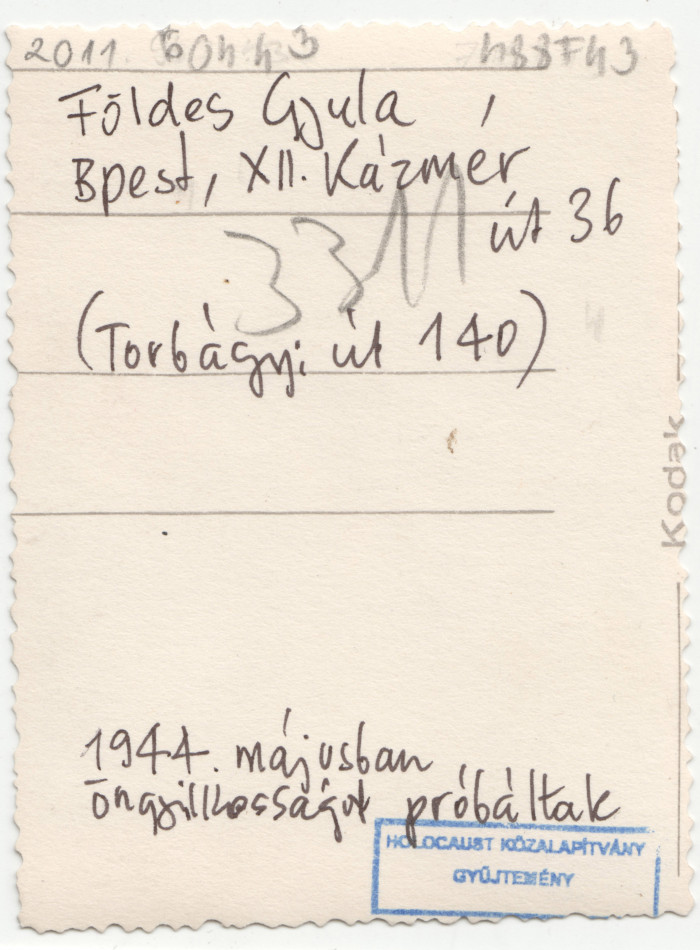 2011.
Földes Gyula
Bpest, XII. Kázmér
út 36
33M
(Torbágyi út 140)
Kodak
1944. májusban
öngyilkosságot próbáltak
HOLOCAUST KÖZALAPÍTVÁNY
GYŰJTEMÉNY